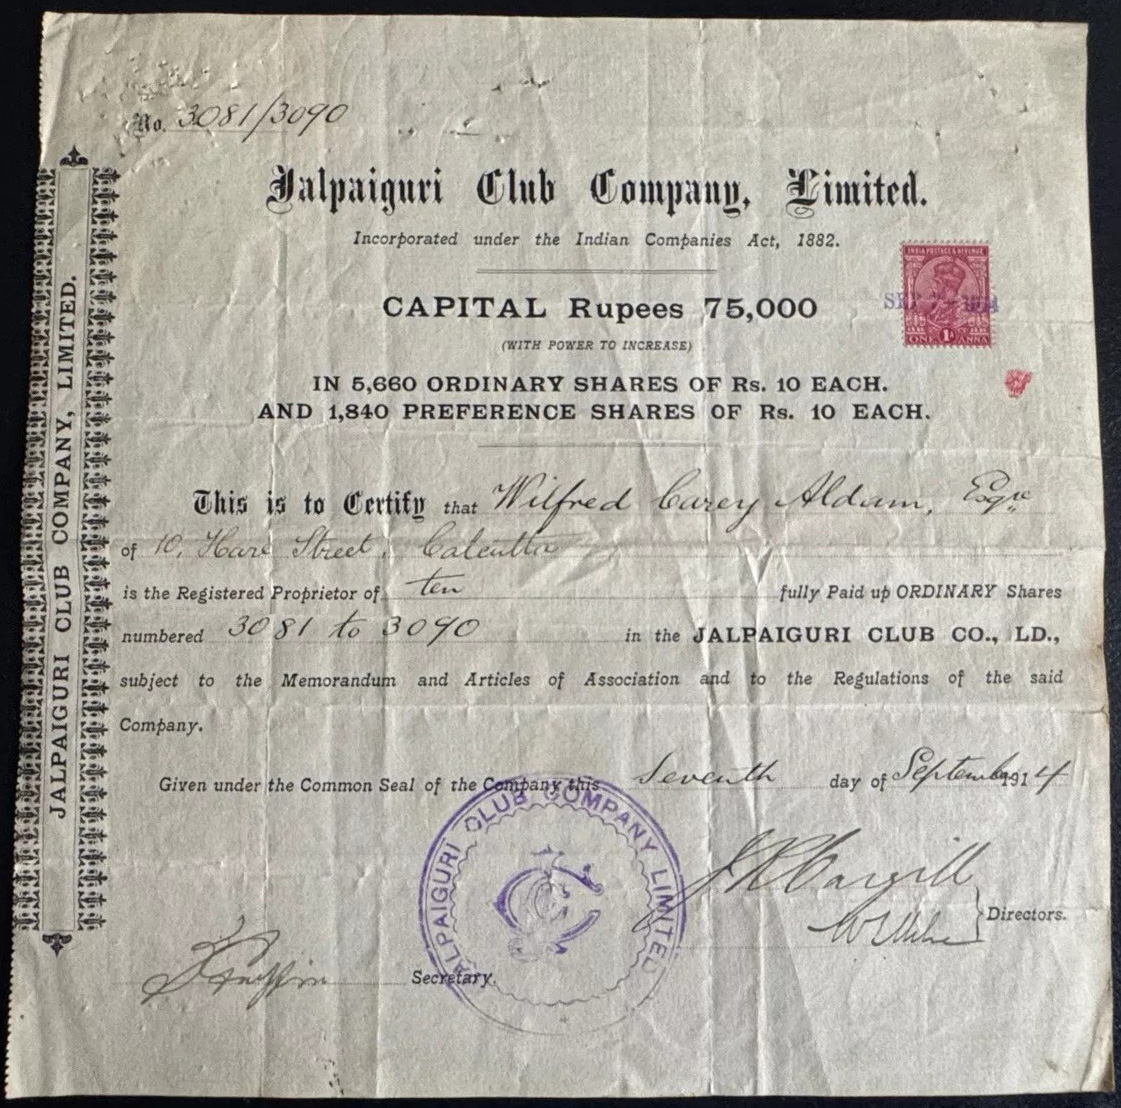 No. 3081/3090
Jalpaiguri Club Company, Limited.
Incorporated under the Indian Companies Act, 1882.
INDIA POSTAGE & REVENUE
SEP 7 - 1914
1A
ONE ANNA
CAPITAL Rupees 75,000
(WITH POWER TO INCREASE)
IN 5,660 ORDINARY SHARES OF Rs. 10 EACH.
AND 1,840 PREFERENCE SHARES OF Rs. 10 EACH.
This is to Certify that Wilfred Carey Aldam, Esqre
of 10, Hare Street, Calcutta
is the Registered Proprietor of ten fully Paid up ORDINARY Shares
numbered 3081 to 3090 in the JALPAIGURI CLUB CO., LD.,
subject to the Memorandum and Articles of Association and to the Regulations of the said
Company.
Given under the Common Seal of the Company this Seventh day of September 1914
JALPAIGURI CLUB COMPANY LIMITED
J R Cargill
Directors.
Secretary.
JALPAIGURI CLUB COMPANY, LIMITED.